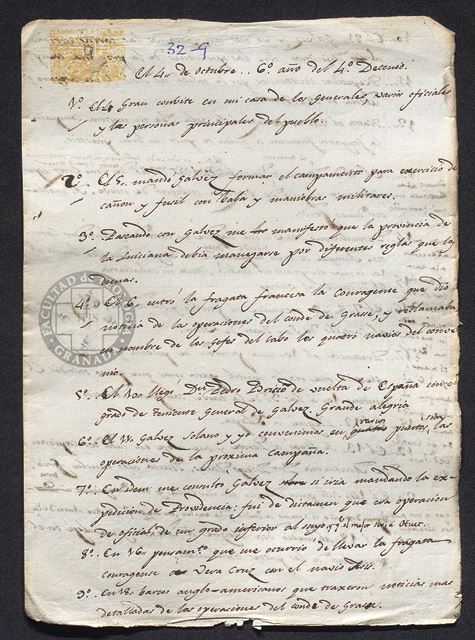 32-9
El 4 de octubre.. 6º año del 4º Decenio.
1º. El 4 Gran convite en mi casa de los Generales varios oficiales
y las personas principales del pueblo
2º. El 5. mando Galvez formar el campamento para exercicio de
cañon y fusil con bala y maniobras militares.
3º. Paseando con Galvez me manifesto que la provincia de
la Luisiana debia manejarse por diferentes reglas que la
demas.
4º. El 6. entró la fragata francesa la Courageuse que dio
noticia de las operaciones del conde de Grasse, y reclamaba
nombre de los Gefes del Cabo los quatro navios del conve
nio.
5º. El 10 llegó Dn. Pedro de vuelta de España con el
grado de teniente General de Galvez. Grande alegria
6º. El 11. Galvez Solano y yo convenimos en varios puntos, sobre las
operaciones de la proxima Campaña.
7º. En idem me consulto Galvez si iria mandando la ex
pedicion de Providencia: fui de dictamen que era operacion
de oficial, de un grado inferior al suyo
8º. En 16 pensamto. que me ocurrió de llevar la fragata
courageuse a Vera Cruz con el navio
9º. En 18. barcos anglo-americanos que traxeron noticias mas
detalladas de las operaciones del conde de Grasse.
FACULTAD DE
GRANADA